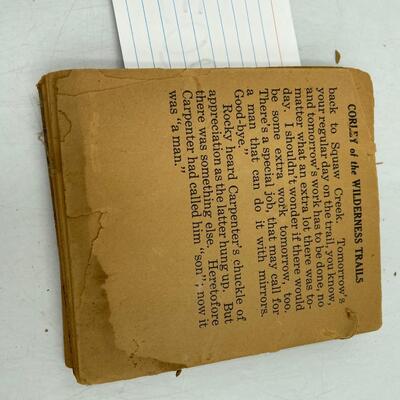 CORLEY of the WILDERNESS TRAILS
back to Squaw Creek. Tomorrow's
your regular day on the trail, you know,
and tomorrow's work has to be done, no
matter what an extra lot there was to-
day. I shouldn't wonder if there would
be some extra work tomorrow, too.
There's a special job, that may call for
a man that can do it with mirrors.
Good-bye."
Rocky heard Carpenter's chuckle of
appreciation as the latter hung up. But
there was something else. Heretofore
Carpenter had called him "son"; now it
was "a man."